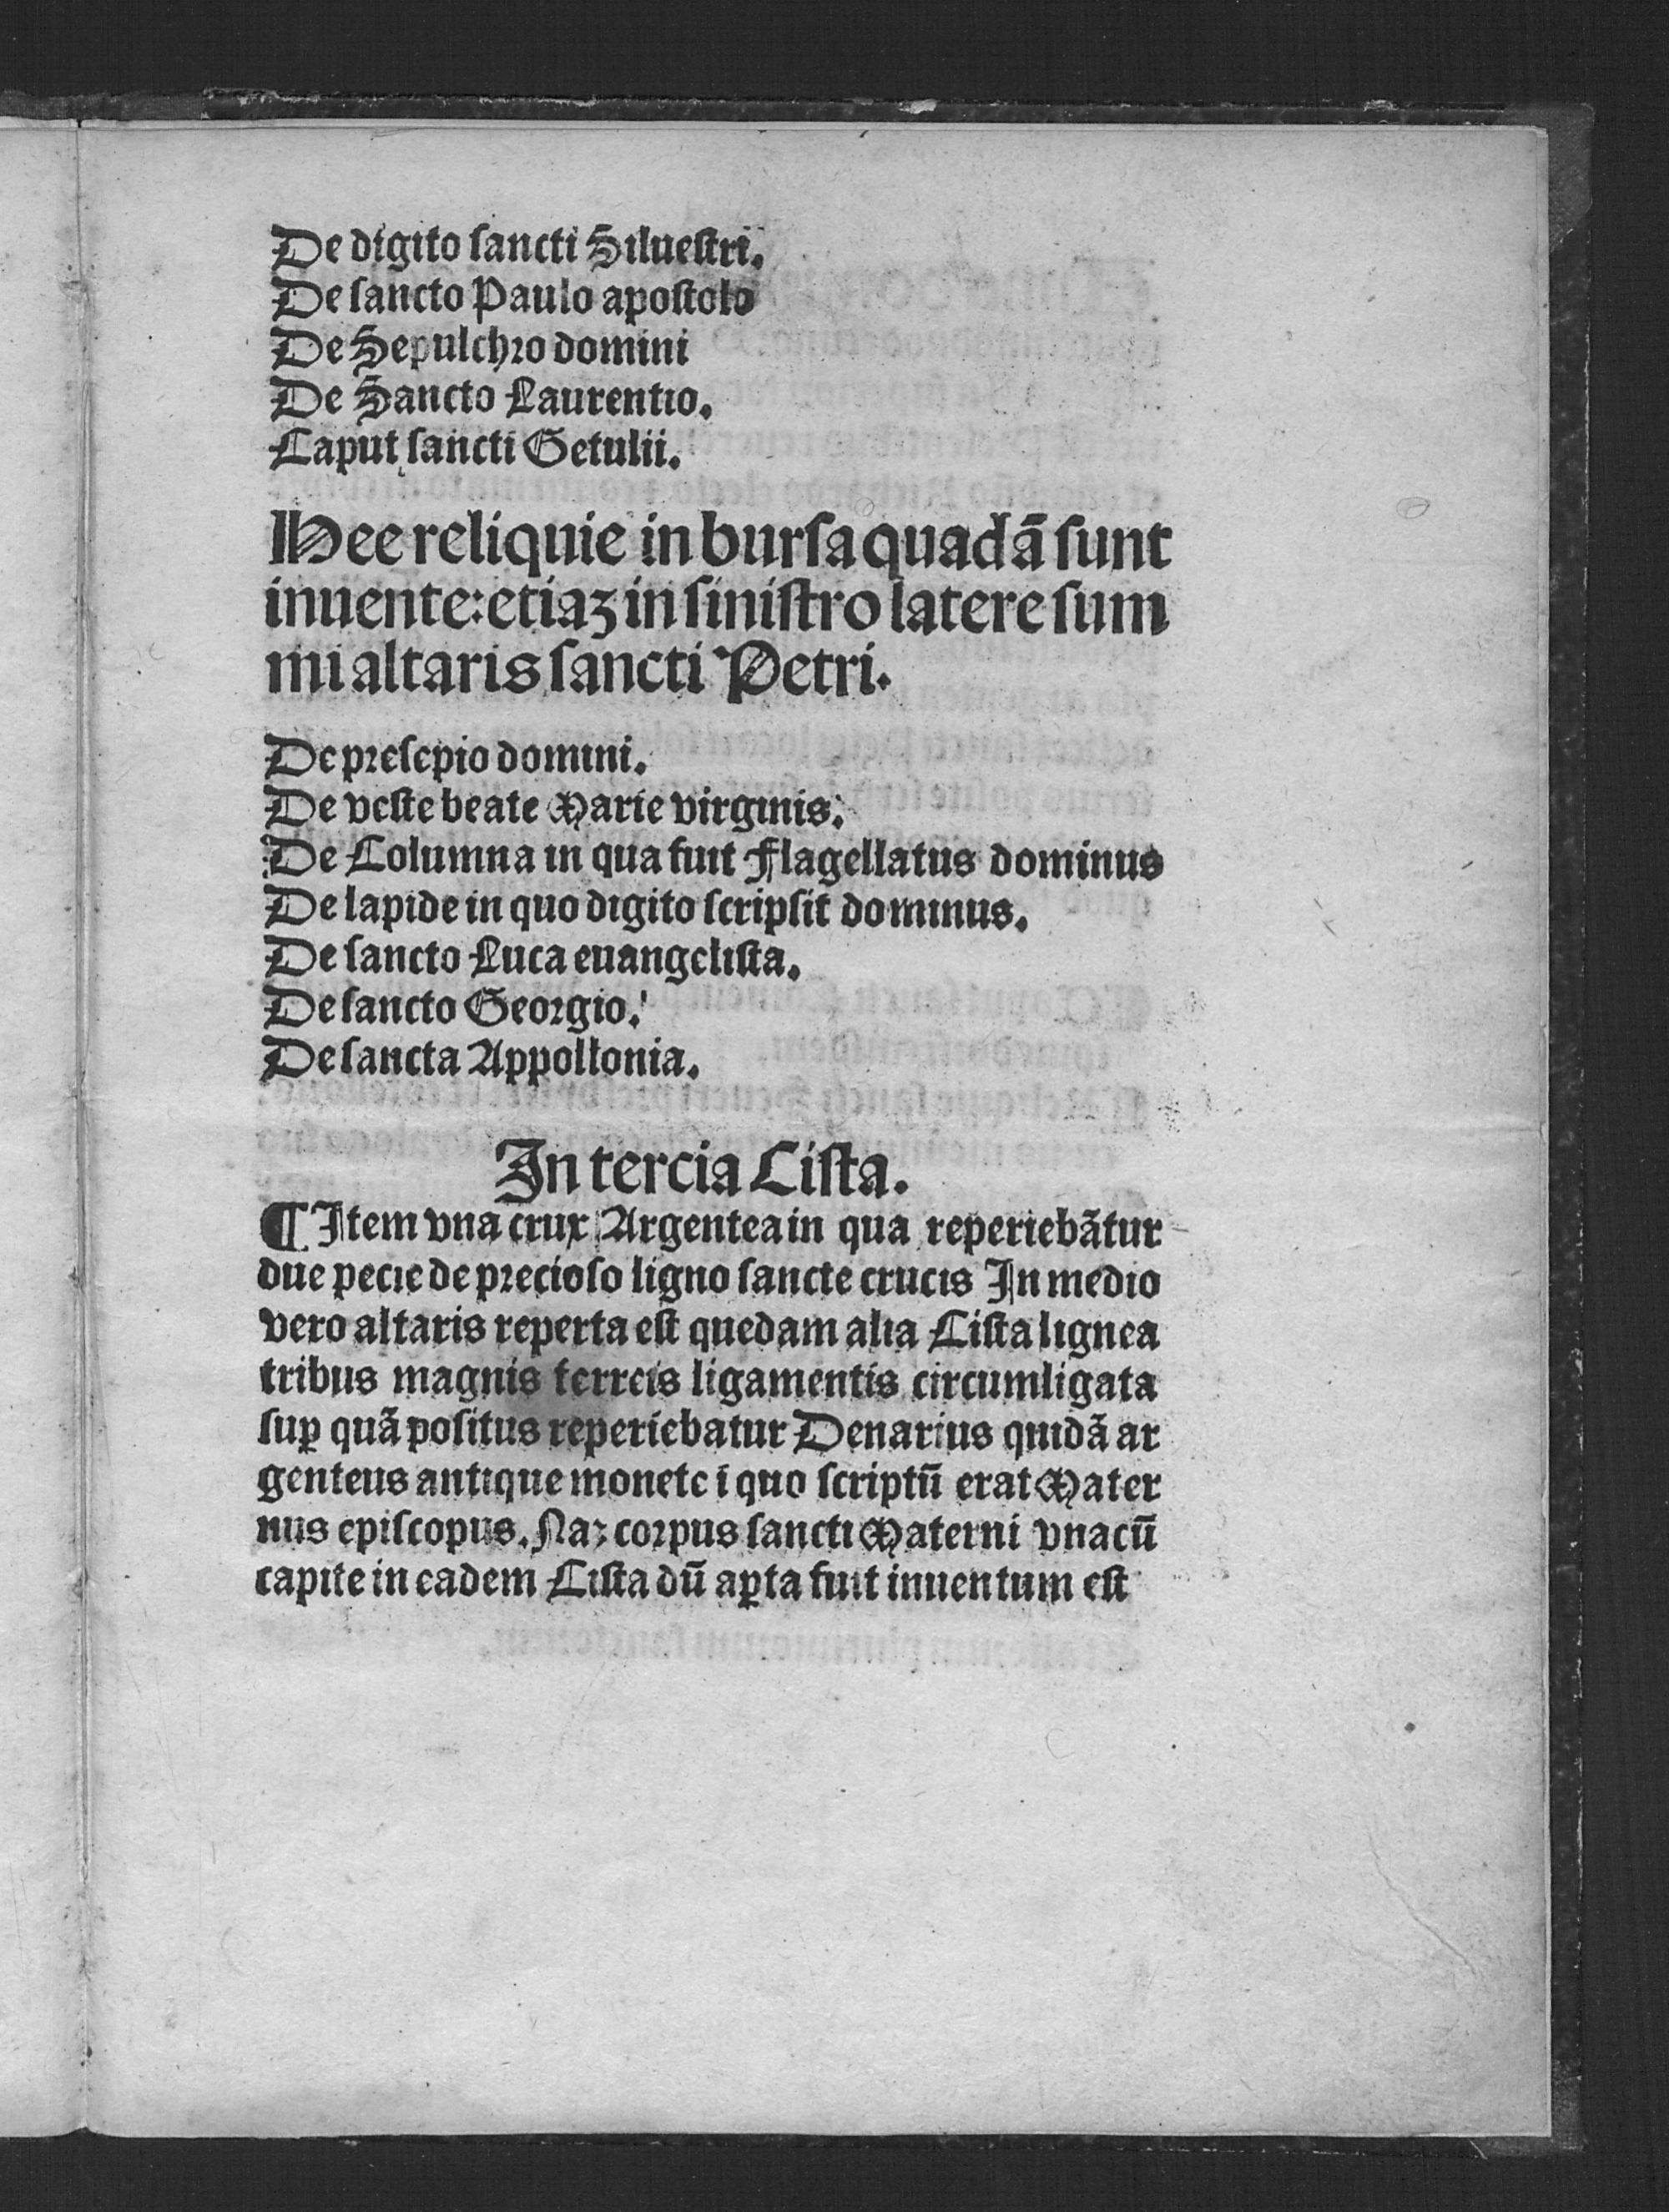 De digito ſancti Silueſtri.
De ſancto Paulo apoſtolo
De Sepulchro domini
De Sancto Laurentio.
Caput ſancti Getulii.
Hee reliquie in burſa quadã ſunt
inuente: etiaꝫ in ſiniſtro latere ſum
mi altaris ſancti Petri.
De preſepio domini.
De veſte beate Marie virginis.
De Columna in qua fuit Flagellatus dominus
De lapide in quo digito ſcripſit dominus.
De ſancto Luca euangeliſta.
De ſancto Georgio.
De ſancta Appollonia.
In tercia Ciſta.
¶ Item vna crux Argentea in qua reperiebãtur
due pecie de precioſo ligno ſancte crucis In medio
vero altaris reperta eſt quedam alia Ciſta lignea
tribus magnis ferreis ligamentis circumligata
ſuꝑ quã poſitus reperiebatur Denarius quidã ar
genteus antique monete ĩ quo ſcriptũ erat Mater
nus epiſcopus. Naꝫ corpus ſancti Materni vnacũ
capite in eadem Ciſta dũ aꝑta fuit inuentum eſt